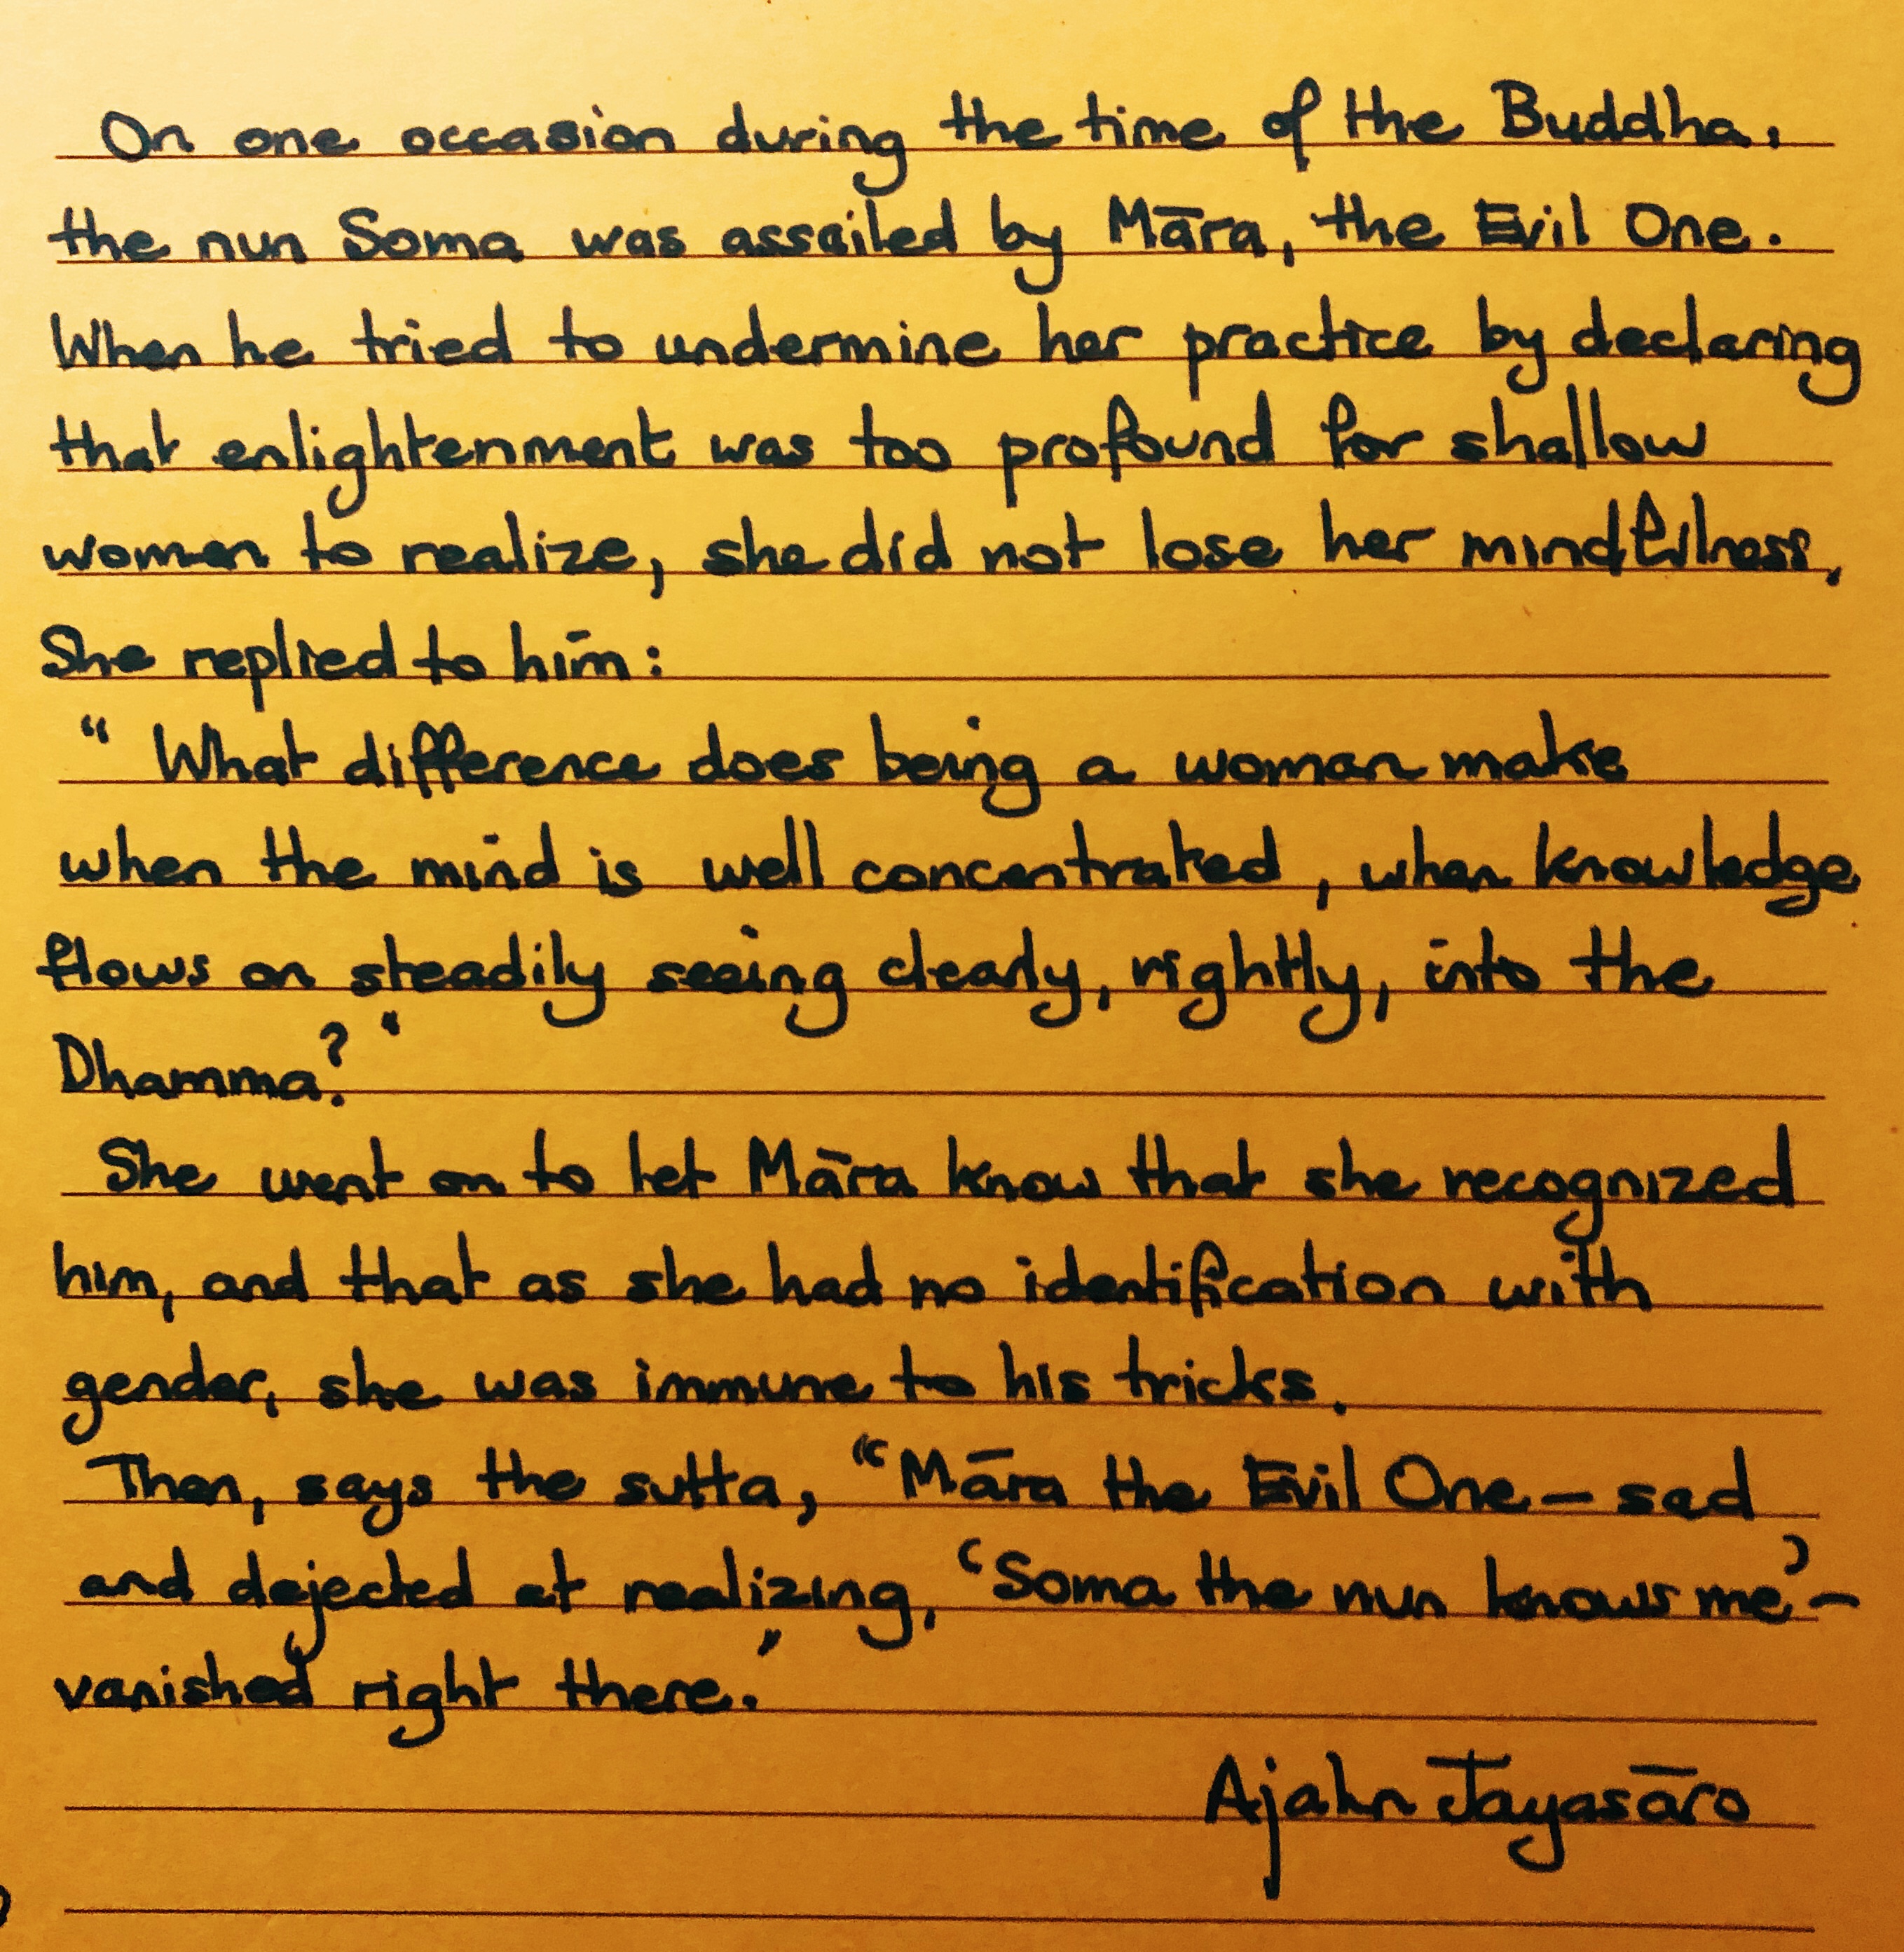 On one occasion during the time of the Buddha,
the nun Soma was assailed by Māra, the Evil One.
When he tried to undermine her practice by declaring
that enlightenment was too profound for shallow
women to realize, she did not lose her mindfulness.
She replied to him:
"What difference does being a woman make
when the mind is well concentrated, when knowledge
flows on steadily seeing clearly, rightly, into the
Dhamma?"
She went on to let Māra know that she recognized
him, and that as she had no identification with
gender, she was immune to his tricks.
Then, says the sutta, "Māra the Evil One – sad
and dejected at realizing, 'Soma the nun knows me' –
vanished right there."
Ajahn Jayasāro